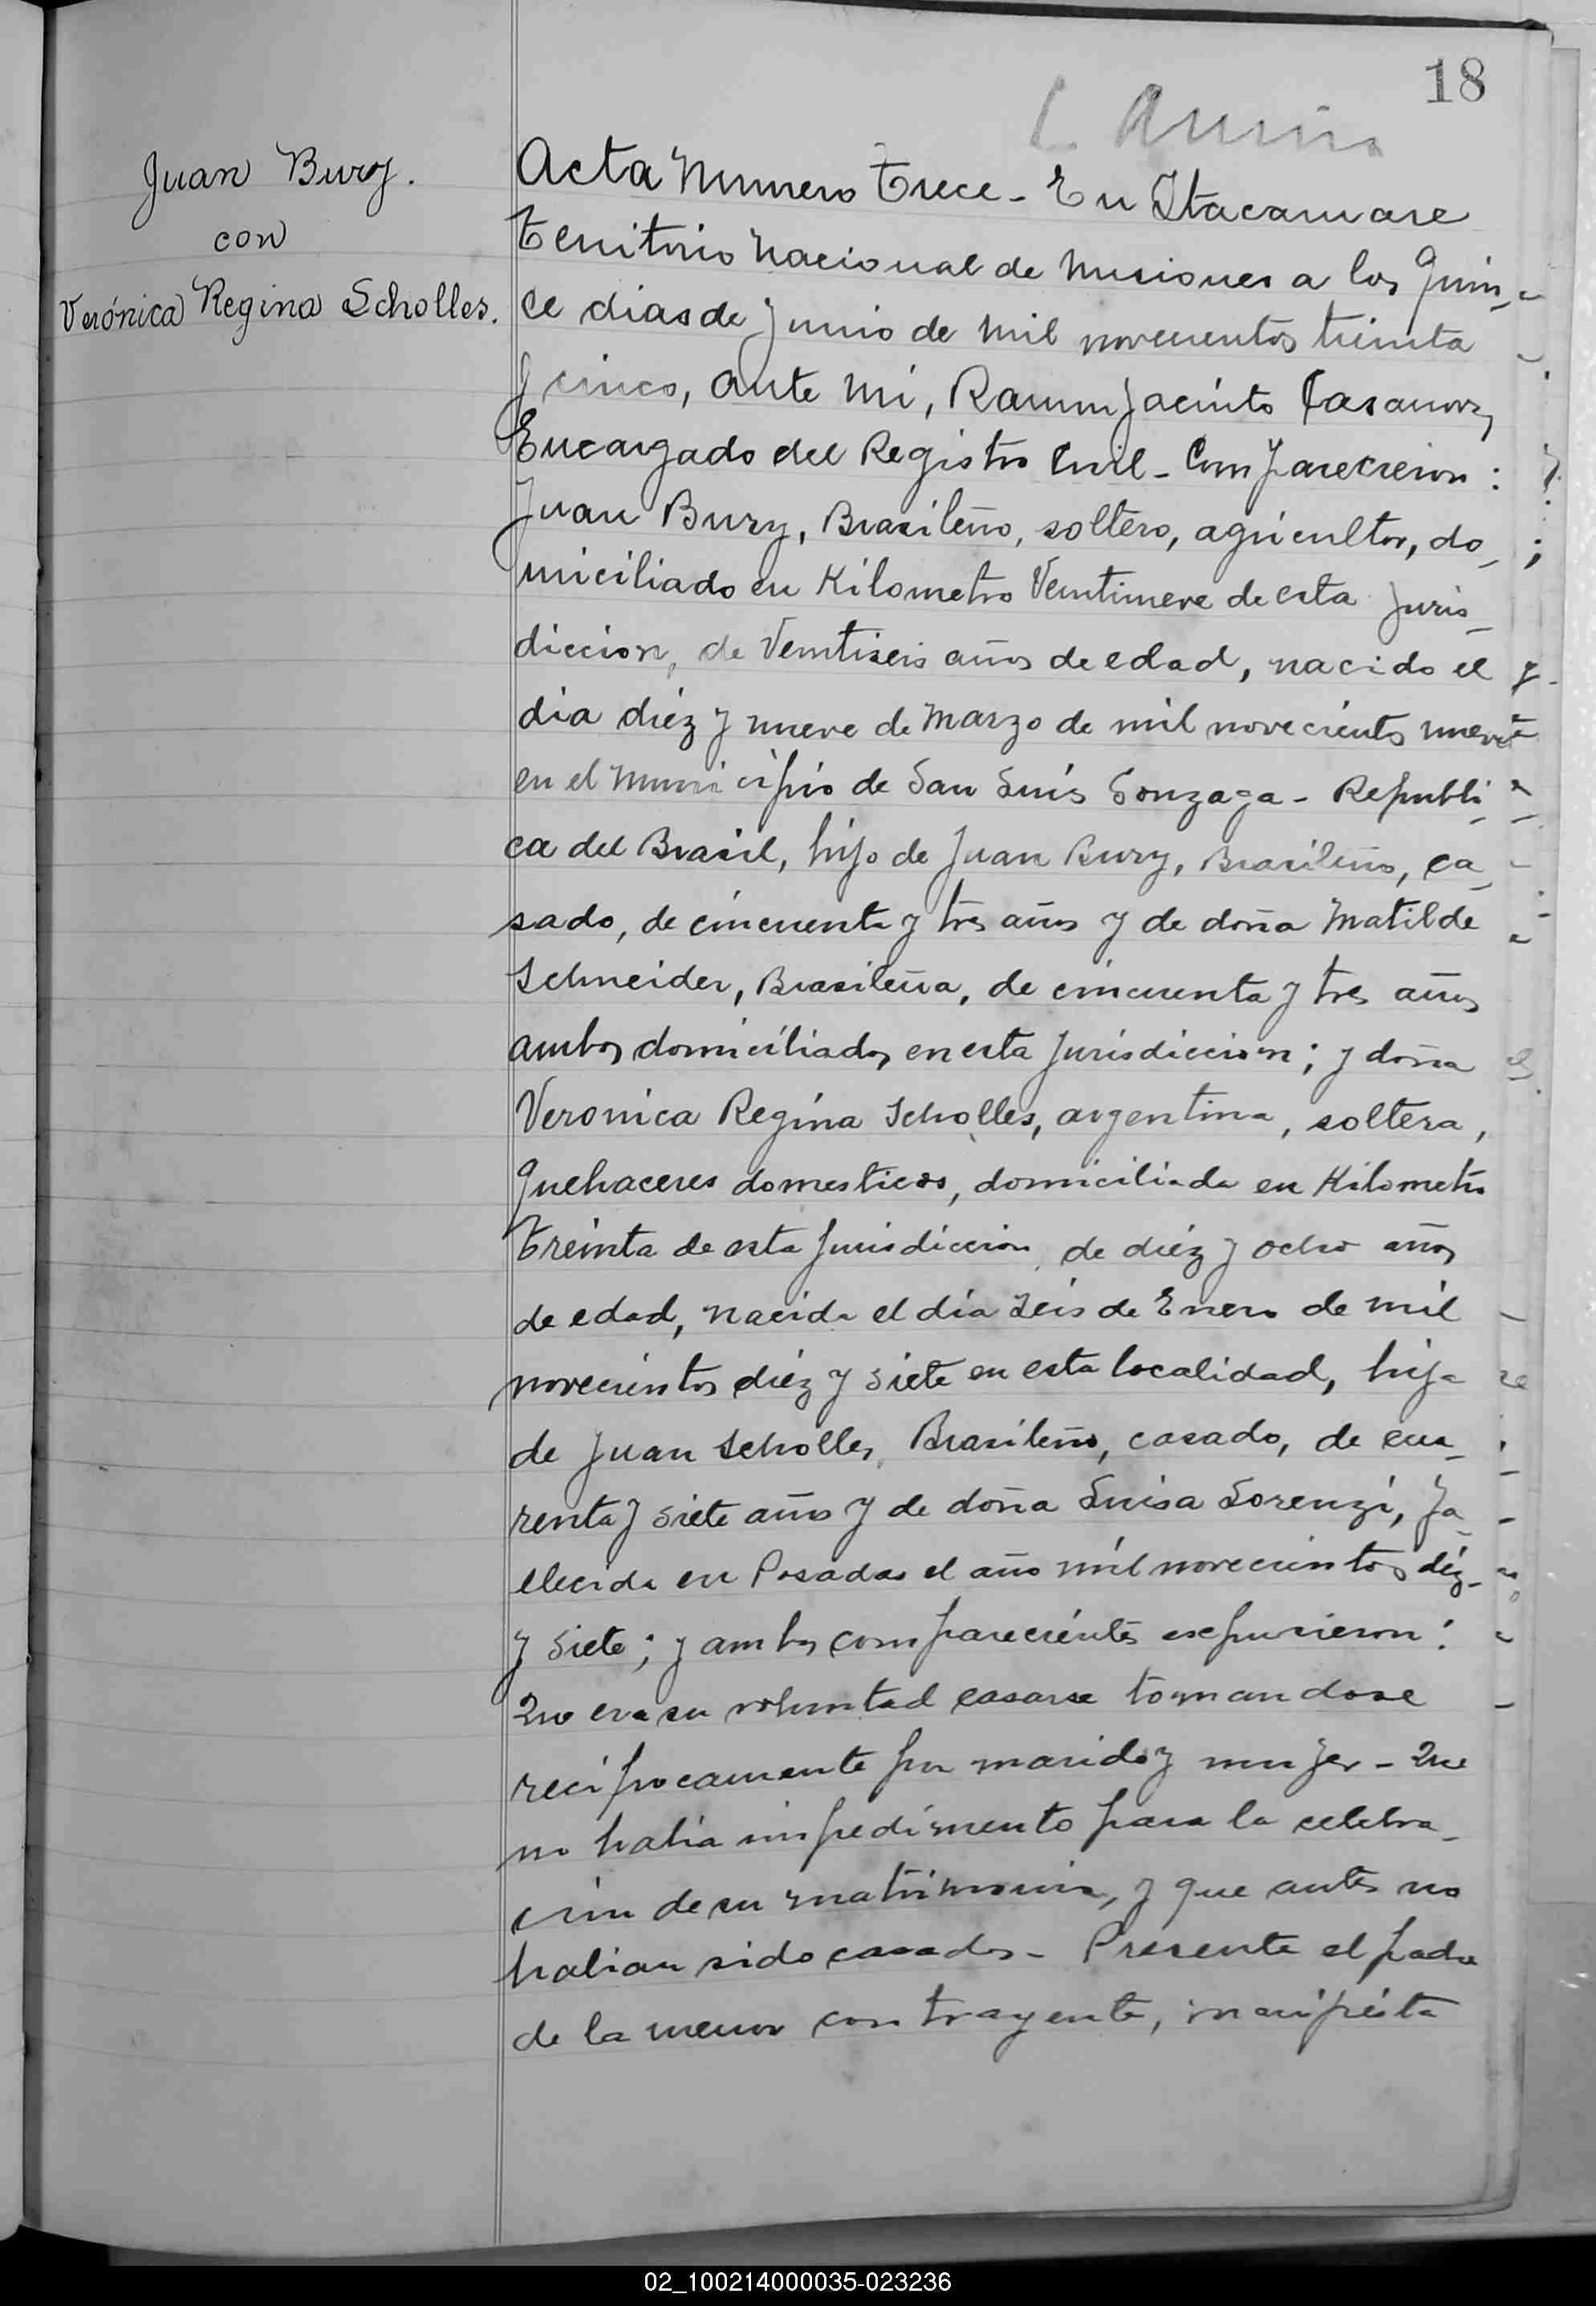 18
Juan Bury.
con
Verónica Regina Scholles.
Acta Numero Trece - En Itacaruare
Territorio Nacional de Misiones a los Quin_
ce dias de Junio de Mil novecientos treinta
y cinco, ante mi, Ramon Jacinto Casanova,
Encargado del Registro Civil - Comparecieron:
Juan Bury, Brasileño, soltero, agricultor, do_
miciliado en Kilometro Veintinueve de esta Juris_
diccion, de Veintiseis años de edad, nacido el
dia diéz y nueve de Marzo de mil novecientos nueve
en el Municipio de San Luis Gonzaga - Republi_
ca del Brasil, hijo de Juan Bury, Brasileño, ca_
sado, de cincuenta y tres años y de doña Matilde
Schneider, Brasileña, de cincuenta y tres años
ambos domiciliados en esta Jurisdiccion; y doña
Veronica Regina Scholles, argentina, soltera,
Quehaceres domesticos, domiciliada en Kilometro
Treinta de esta Jurisdiccion, de diéz y ocho años
de edad, nacida el dia Seis de Enero de mil
novecientos diéz y siete en esta localidad, hija
de Juan Scholles, Brasileño, casado, de cua_
renta y siete años y de doña Luisa Lorenzi, fa_
llecida en Posadas el año mil novecientos diéz_
y siete; y ambos comparecientes expusieron:
Que era su voluntad casarse tomandose
reciprocamente por marido y mujer - Que
no habia impedimento para la celebra_
cion de su matrimonio, y que antes no
habian sido casados - Presente el padre
de la menor contrayente, manifiesta
02_100214000035-023236